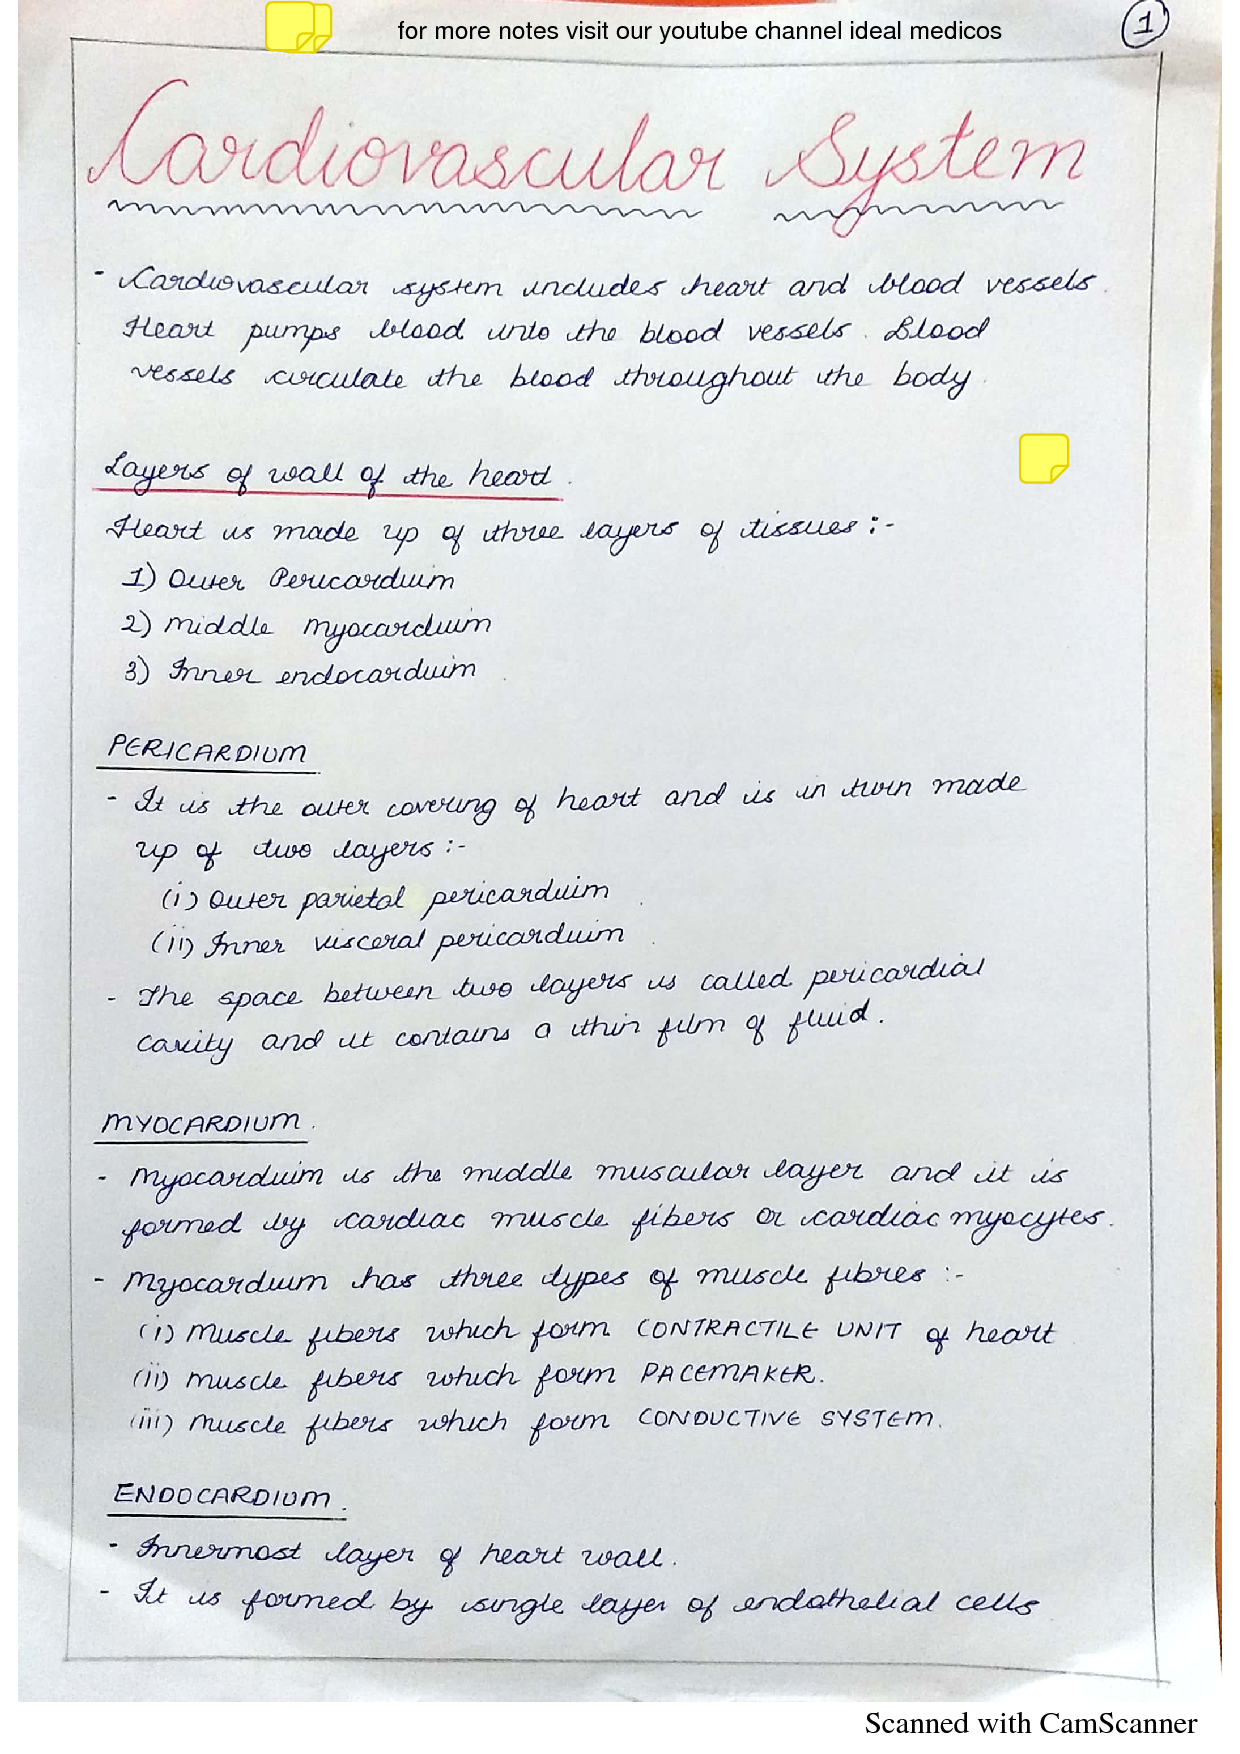 for more notes visit our youtube channel ideal medicos
1
Cardiovascular System
- Cardiovascular system includes heart and blood vessels.
Heart pumps blood into the blood vessels. Blood
vessels circulate the blood throughout the body.
Layers of wall of the heart.
Heart is made up of three layers of tissues :-
1) Outer Pericardium
2) Middle Myocardium
3) Inner endocardium
PERICARDIUM
- It is the outer covering of heart and is in turn made
up of two layers :-
(i) Outer parietal pericardium
(ii) Inner visceral pericardium
- The space between two layers is called pericardial
cavity and it contains a thin film of fluid.
MYOCARDIUM.
- Myocardium is the middle muscular layer and it is
formed by cardiac muscle fibers or cardiac myocytes.
- Myocardium has three types of muscle fibres :-
(i) Muscle fibers which form CONTRACTILE UNIT of heart
(ii) Muscle fibers which form PACEMAKER.
(iii) Muscle fibers which form CONDUCTIVE SYSTEM.
ENDOCARDIUM.
- Innermost layer of heart wall.
- It is formed by single layer of endothelial cells
Scanned with CamScanner